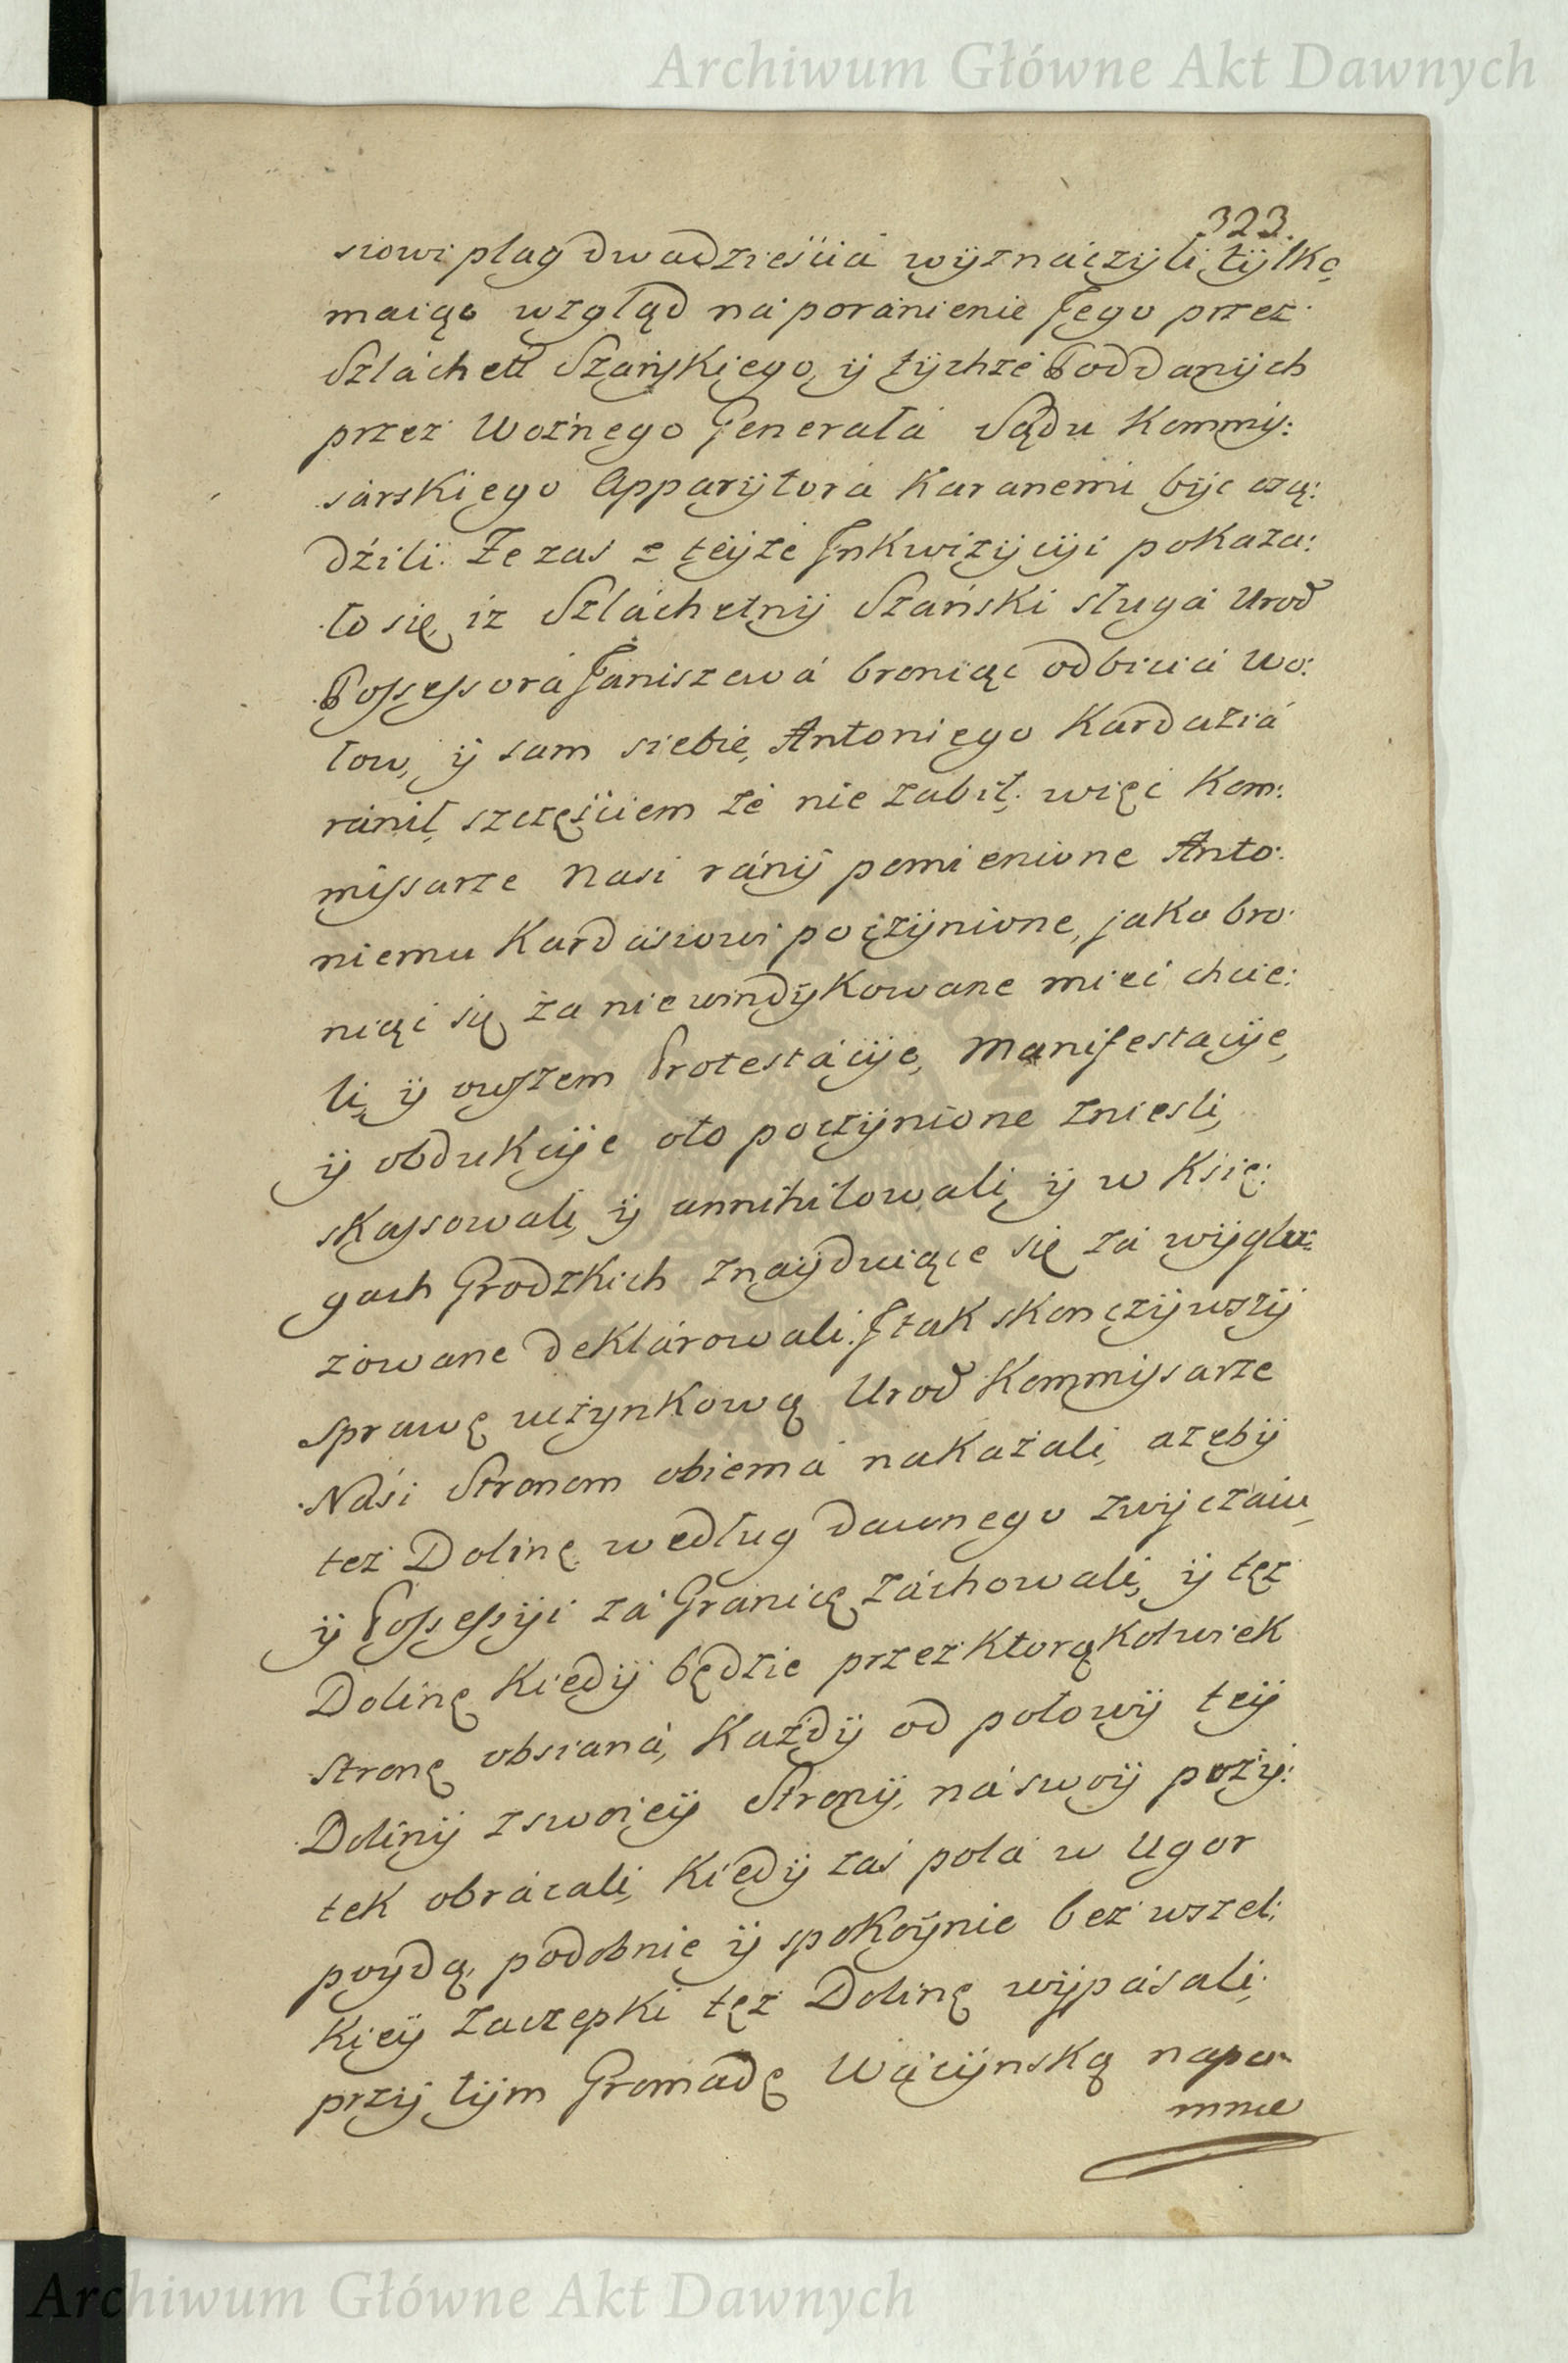 Archiwum Główne Akt Dawnych
323.
siowi plag dwadzieścia wyznaczyli tylko
maiąc wzgląd na poranienie Jego przez
Szlachett Szańskiego, y tychże Poddanych
przez Woźnego Generała Sądu Kommis:
sarskiego Apparytora Karanemi byc osą:
dzili. Ze zas z teyże Inkwizycyi pokaza:
ło się, iz Szlachetny Szański sługa Urod
Possessora Janiszewa broniąc odbicia Wo:
łow, y sam siebie, Antoniego Kardazia
ranił, szczęściem że nie zabił. więc Kom:
missarze Nasi rany pomienione Anto:
niemu Kardasiowi poczynione, jako bro:
niąc się za niewindykowane mieć chcie:
li, y owszem Protestacye, Manifestacye,
y obdukcye oto poczynione zniesli,
skassowali, y annihilowali, y w Xię:
gach Grodzkich znayduiące się za wyglu:
zowane deklarowali. I tak skonczywszy
sprawę uczynkową Urod Kommissarze
Nasi Stronom obiema nakazali, azeby
tez Dolinę według dawnego zwyczaiu,
y Possessyi za Granicę zachowali, y tęz
Dolinę Kiedy będzie przez Ktorąkolwiek
stronę obsiana, Każdy od połowy tey
Doliny z swoiey Strony, na swoy pozy:
tek obracali, Kiedy zaś pola w Ugor
poydą, podobnie y spokoynie bez wszel:
kiey zaczepki tęz Dolinę wypasali;
przy tym Gromadę Wącynską napo-
mnie
Archiwum Główne Akt Dawnych